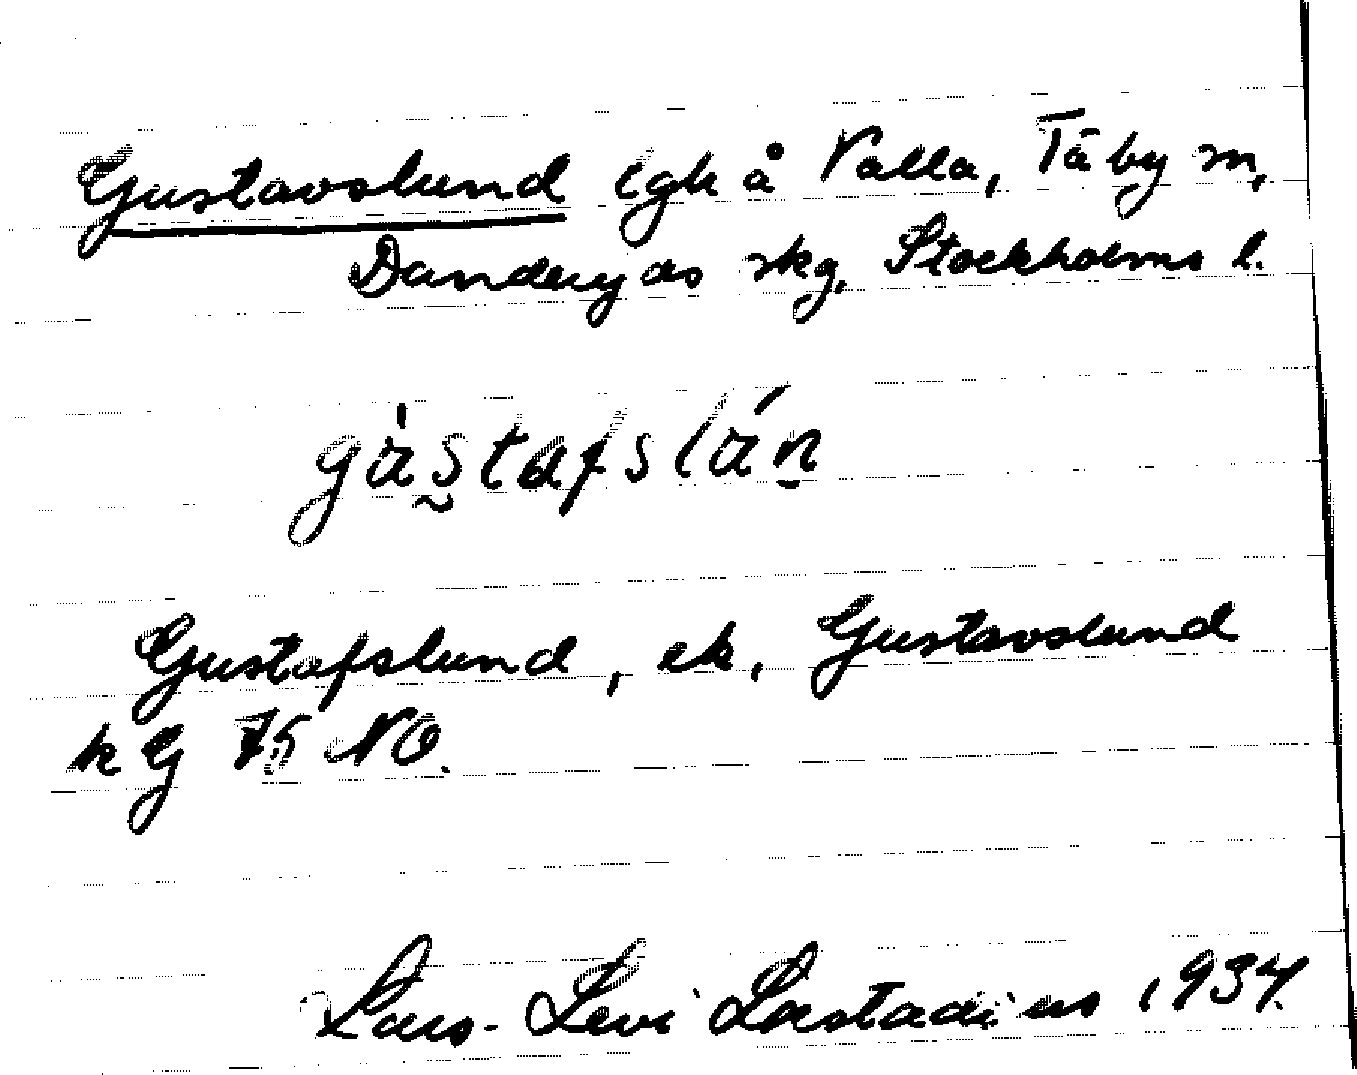 Gustavslund lgh å Valla, Täby sn,
Danderyds skg, Stockholms l.
Gustafslund, ek. Gustavslund
kg 75 NO.
Lars-Levi Læstadius 1934.